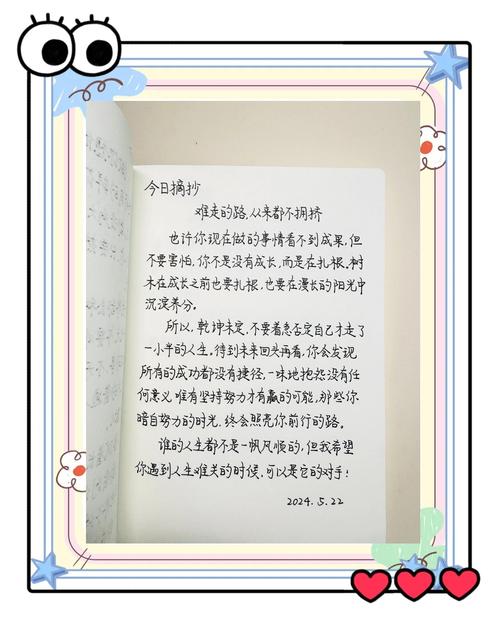 今日摘抄
难走的路,从来都不拥挤
也许你现在做的事情看不到成果,但
不要害怕,你不是没有成长,而是在扎根.树
木在成长之前也要扎根,也要在漫长的阳光中
沉淀养分.
所以,乾坤未定,不要着急否定自己才走了
一小半的人生.待到未来回头再看,你会发现
所有的成功都没有捷径,一味地抱怨没有任
何意义,唯有坚持努力才有赢的可能,那些你
暗自努力的时光,终会照亮你前行的路.
谁的人生都不是一帆风顺的,但我希望
你遇到人生难关的时候,可以是它的对手!
2024.5.22